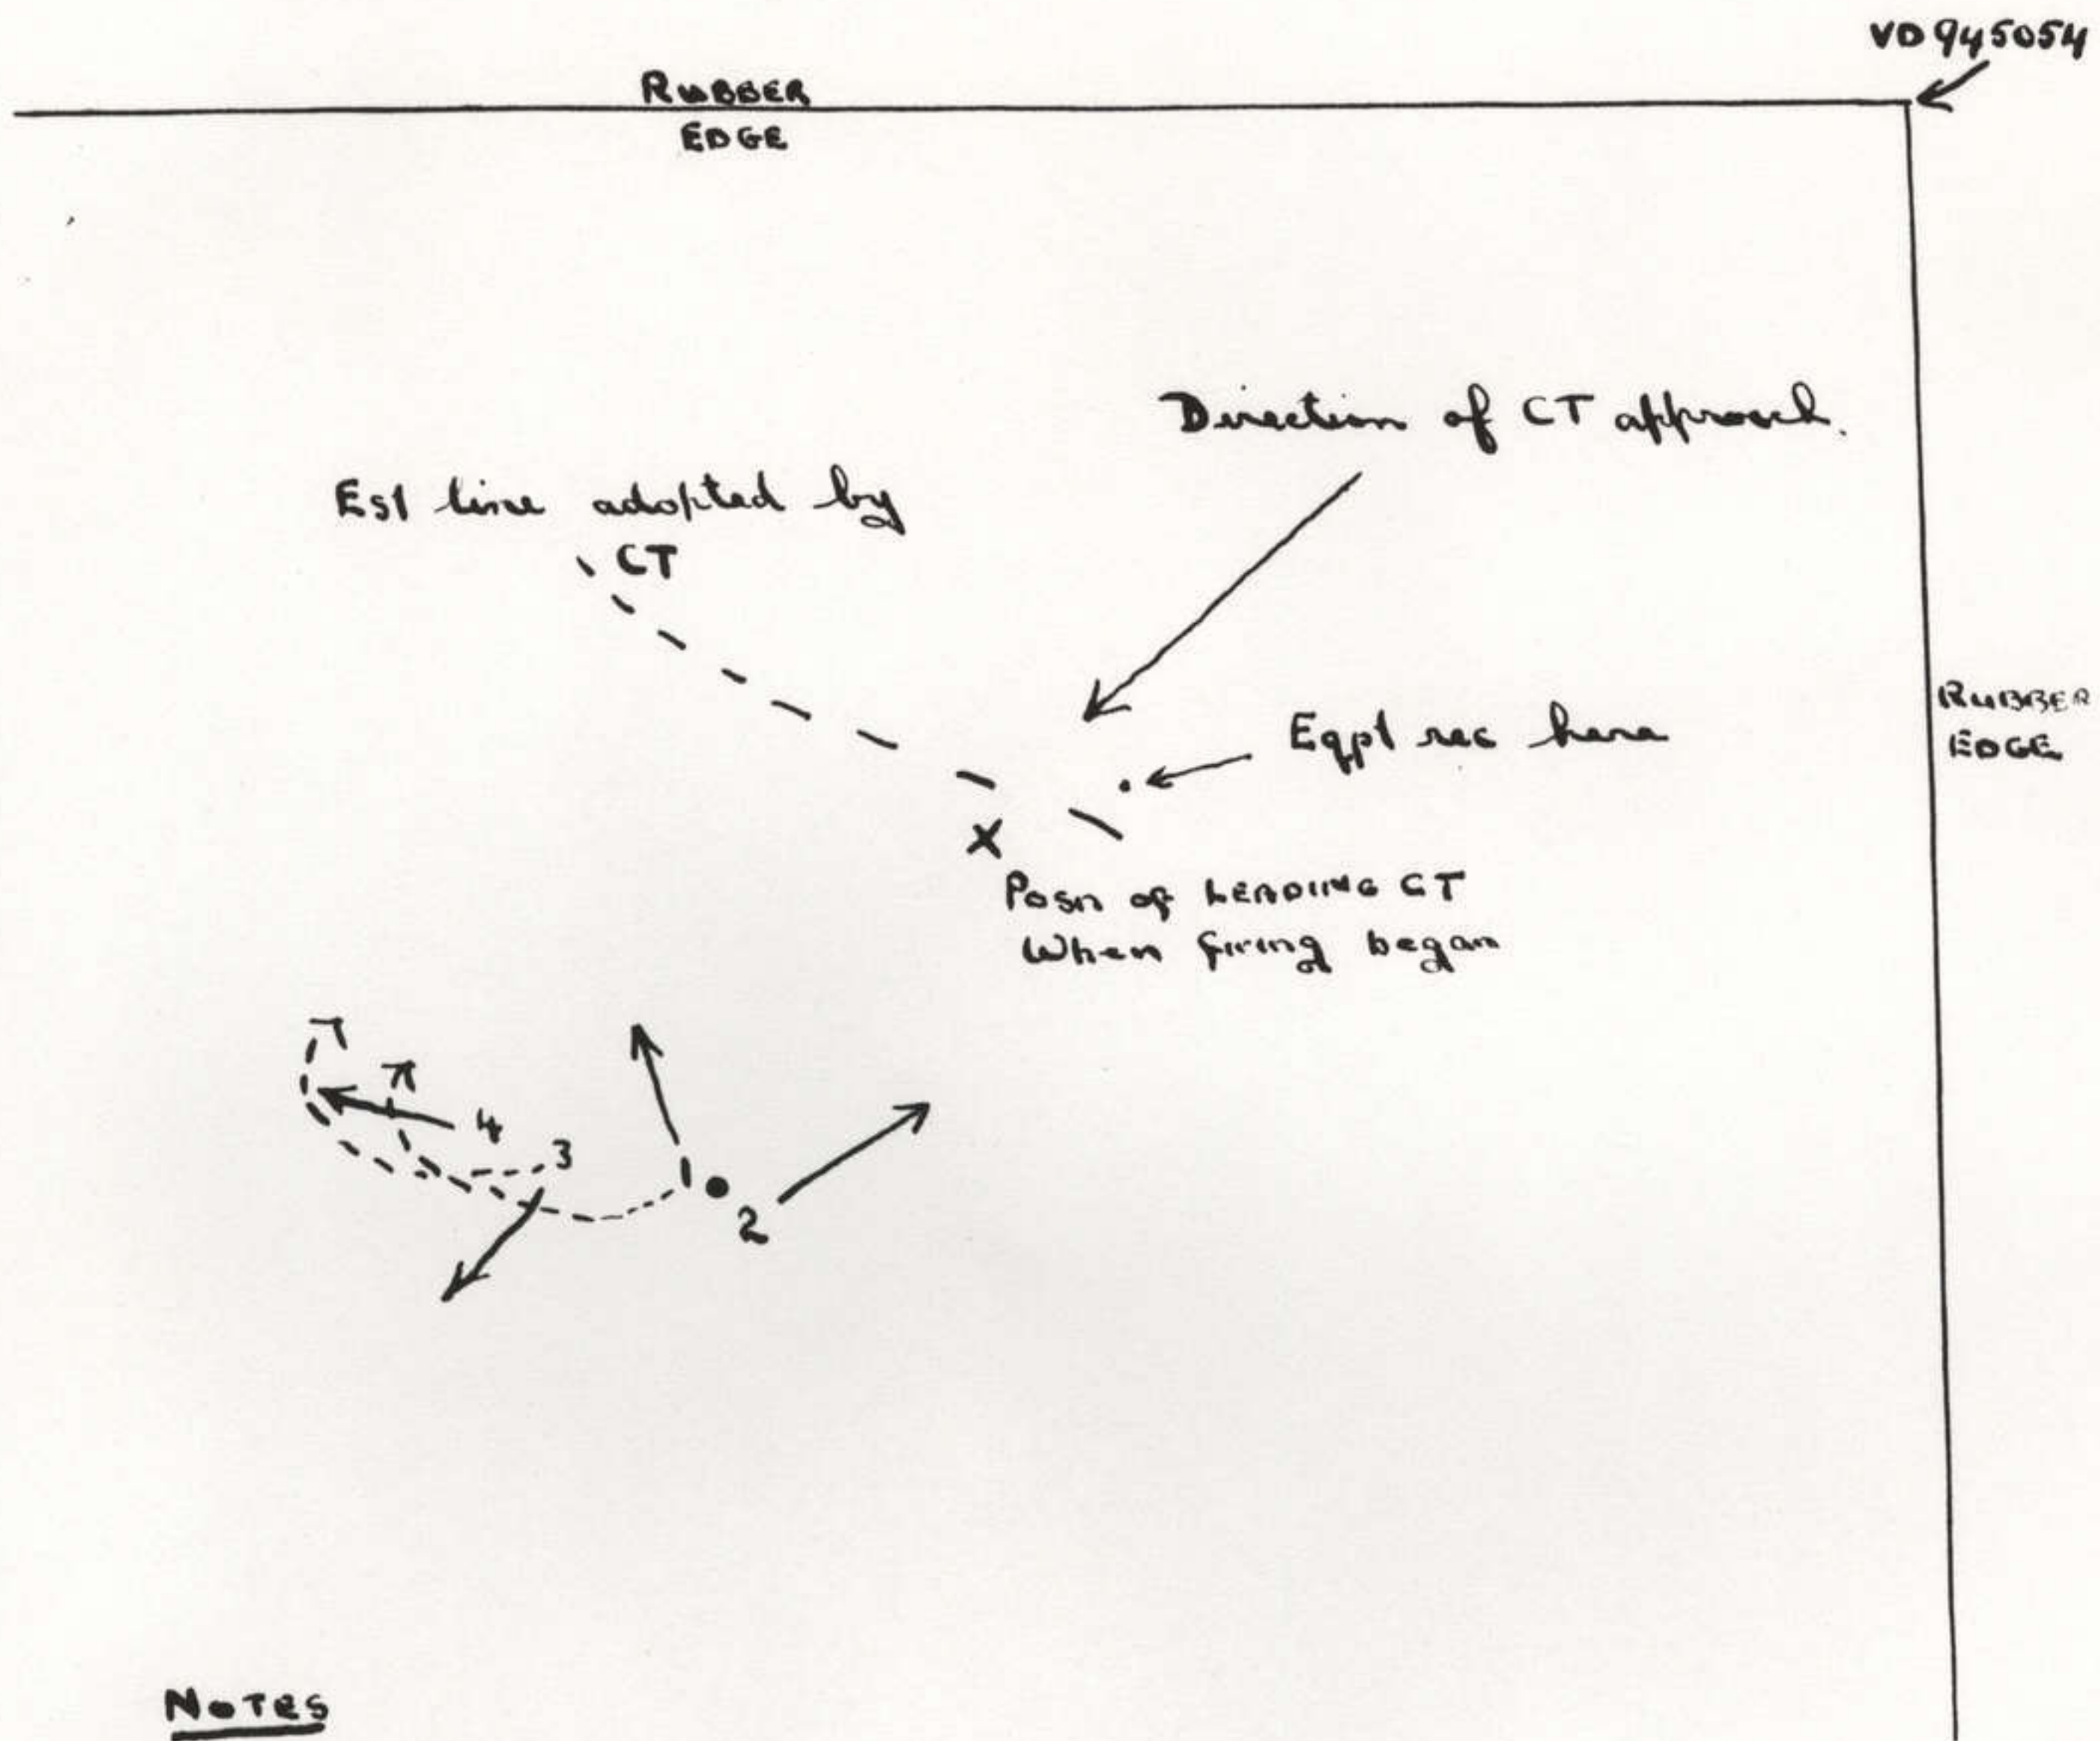 VD945054
RUBBER
EDGE
Direction of CT approach.
Est line adopted by
CT
Eqpt rec here
RUBBER
EDGE
Posn of LEADING CT
When firing began
4
3
1
2
NOTES